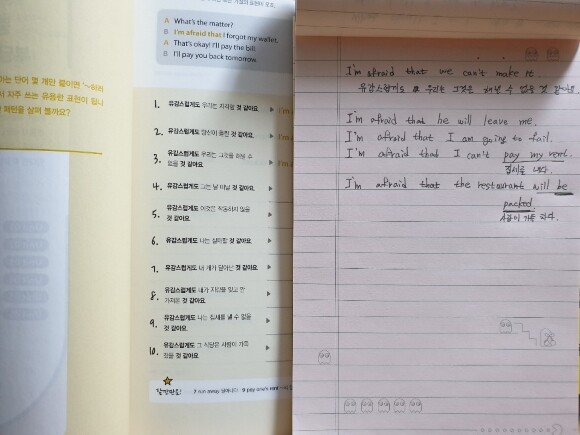 A What's the matter?
B I'm afraid that I forgot my wallet.
A That's okay! I'll pay the bill.
B I'll pay you back tomorrow
하는 단어 몇 개만 붙이면 '~하려
시 자주 쓰는 유용한 표현이 됩니
패턴을 살펴 볼까요?
1. 유감스럽게도 우리는 지각할 것 같아요. ▶ I'm a
2. 유감스럽게도 당신이 틀린 것 같아요. ▶ I'm a
3. 유감스럽게도 우리는 그것을 해낼 수
없을 것 같아요. ▶
4. 유감스럽게도 그는 날 떠날 것 같아요. ▶
5. 유감스럽게도 이것은 작동하지 않을
것 같아요. ▶
6. 유감스럽게도 나는 실패할 것 같아요. ▶
7. 유감스럽게도 내 개가 달아난 것 같아요. ▶
8. 유감스럽게도 내가 지갑을 잊고 안
가져온 것 같아요. ▶
9. 유감스럽게도 나는 집세를 낼 수 없을
것 같아요. ▶
10. 유감스럽게도 그 식당은 사람이 가득
찼을 것 같아요. ▶
잠깐만요! 7 run away 달아나다 9 pay one's rent
I'm afraid that we can't make it.
유감스럽게도 우리는 그것은 해낼 수 없을 것 같아요.
I'm afraid that he will leave me.
I'm afraid that I am going to fail.
I'm afraid that I can't pay my rent.
집세를 내다.
I'm afraid that the restaurant will be
packed.
사람이 가득 차다.